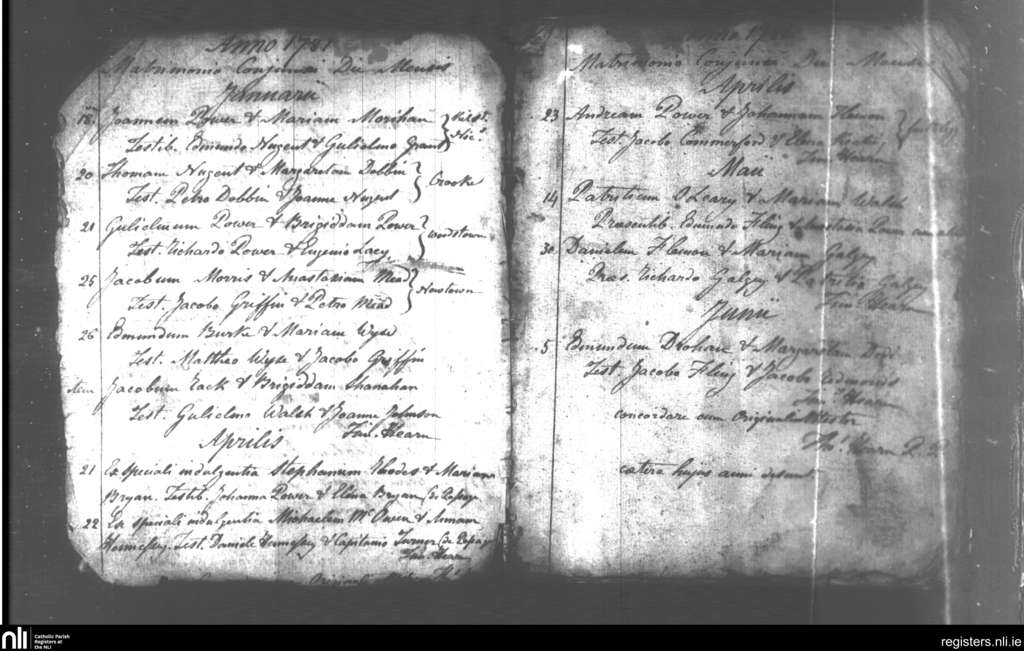 Anno 1781
Matrimonio Conjuncti Die Mensis
Januarii
18 Joannem Power & Mariam Morihan
Testib. Edmundo Nugent & Gulielmo Grant
20 Thomam Nugent & Margaretam Dobbin } Crooke
Test. Petro Dobbin & Joanne Nugent
21 Gulielmum Power & Brigiddam Power
Test. Richardo Power & Eugenio Lacy
25 Jacobum Morris & Anastasiam Mead } Newtown
Test. Jacobo Griffin & Petro Mead
26 Edmundum Burke & Mariam Wyse
Test. Matthao Wyse & Jacobo Griffin
Item Jacobum Rack & Brigiddam Shanahan
Test. Gulielmo Walsh & Joanne Johnson
Hearn
Aprilis
21 Ex speciali indulgentia Stephanum Rhodes & Mariam
Bryan. Testib. Johanna Power & Elena Bryan
22 Ex speciali indulgentia Michaelem McOwen & Annam
Hennessy. Test. Daniele Hennessy & Capitanio Turner
Hearn
Matrimonio Conjuncti Die Mensis
Aprilis
23 Andream Power & Johannam
Test. Jacobo Commerford & Elena
Hearn
Maii
14 Patritium O Leary & Mariam Walsh
Praesentib. Edmundo Fling &
30 Danielem & Mariam Galgey
Praes. Richardo Galgey & Patritio Galgey
Hearn
Junii
5 Edmundum Drohan & Margaretam
Test. Jacobo Fling & Jacobo Edmonds
Hearn
concordare cum Originali
Hearn
catera hujus anni desunt
nli
Catholic Parish
Registers at
the NLI
registers.nli.ie